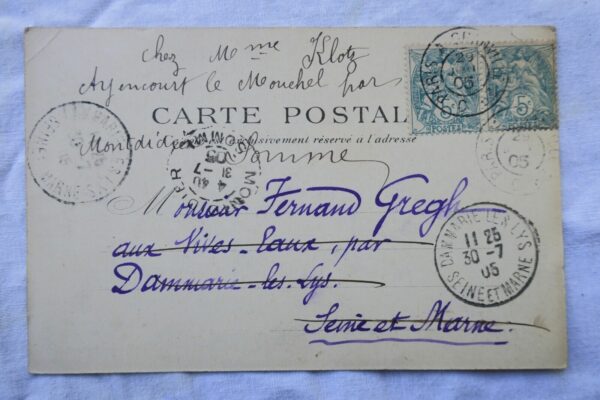 chez Mme Klotz
Ayencourt le Monchel par
CARTE POSTALE
Montdidier exclusivement réservé à l'adresse
Somme
Monsieur Fernand Gregh
aux Vives-Eaux, par
Dammarie-les-Lys.
Seine et Marne.
DAMMARIE LES LYS
11 25
30 -7
05
SEINE ET MARNE
5c
05